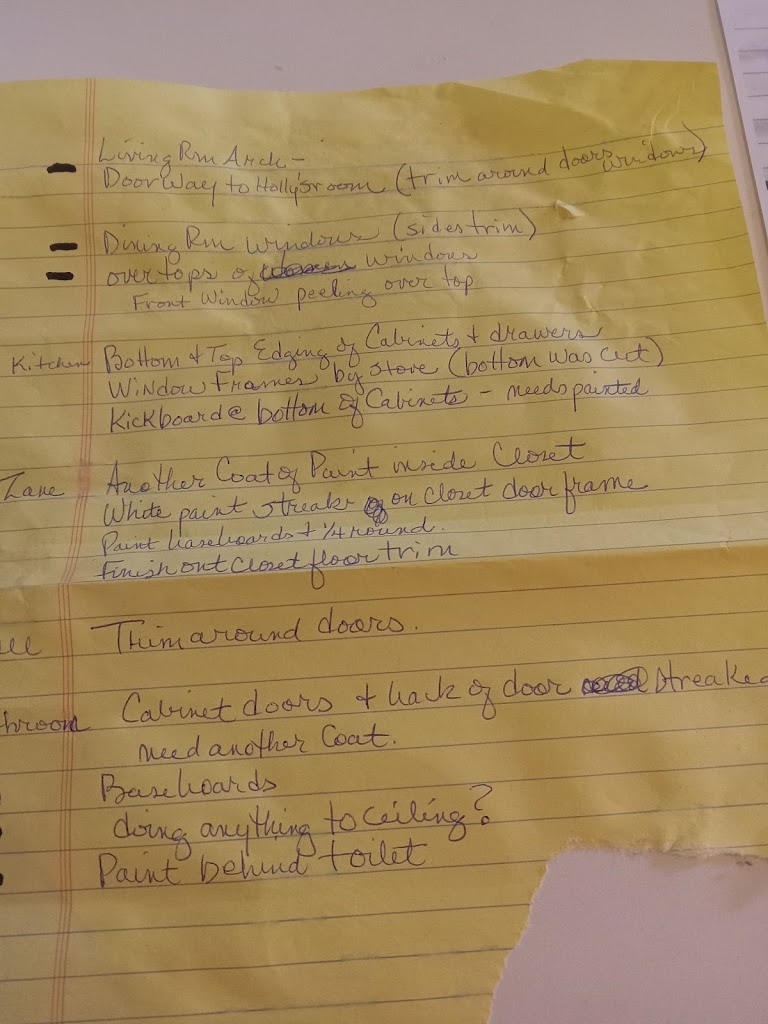 Living Rm Arch -
Door Way to Holly's room (trim around doors, windows)
Dining Rm Windows (sides trim)
over tops of windows
Front Window peeling over top
Kitchen Bottom & Top Edging of Cabinets & drawers
Window Frames by stove (bottom was cut)
Kickboard @ bottom of Cabinets - needs painted
Zane Another Coat of Paint inside Closet
White paint streaks on closet door frame
Paint baseboards & 1/4 round.
Finish out closet floor trim
Trim around doors.
throom Cabinet doors & back of door streaked
need another Coat.
Baseboards
doing anything to ceiling?
Paint behind toilet